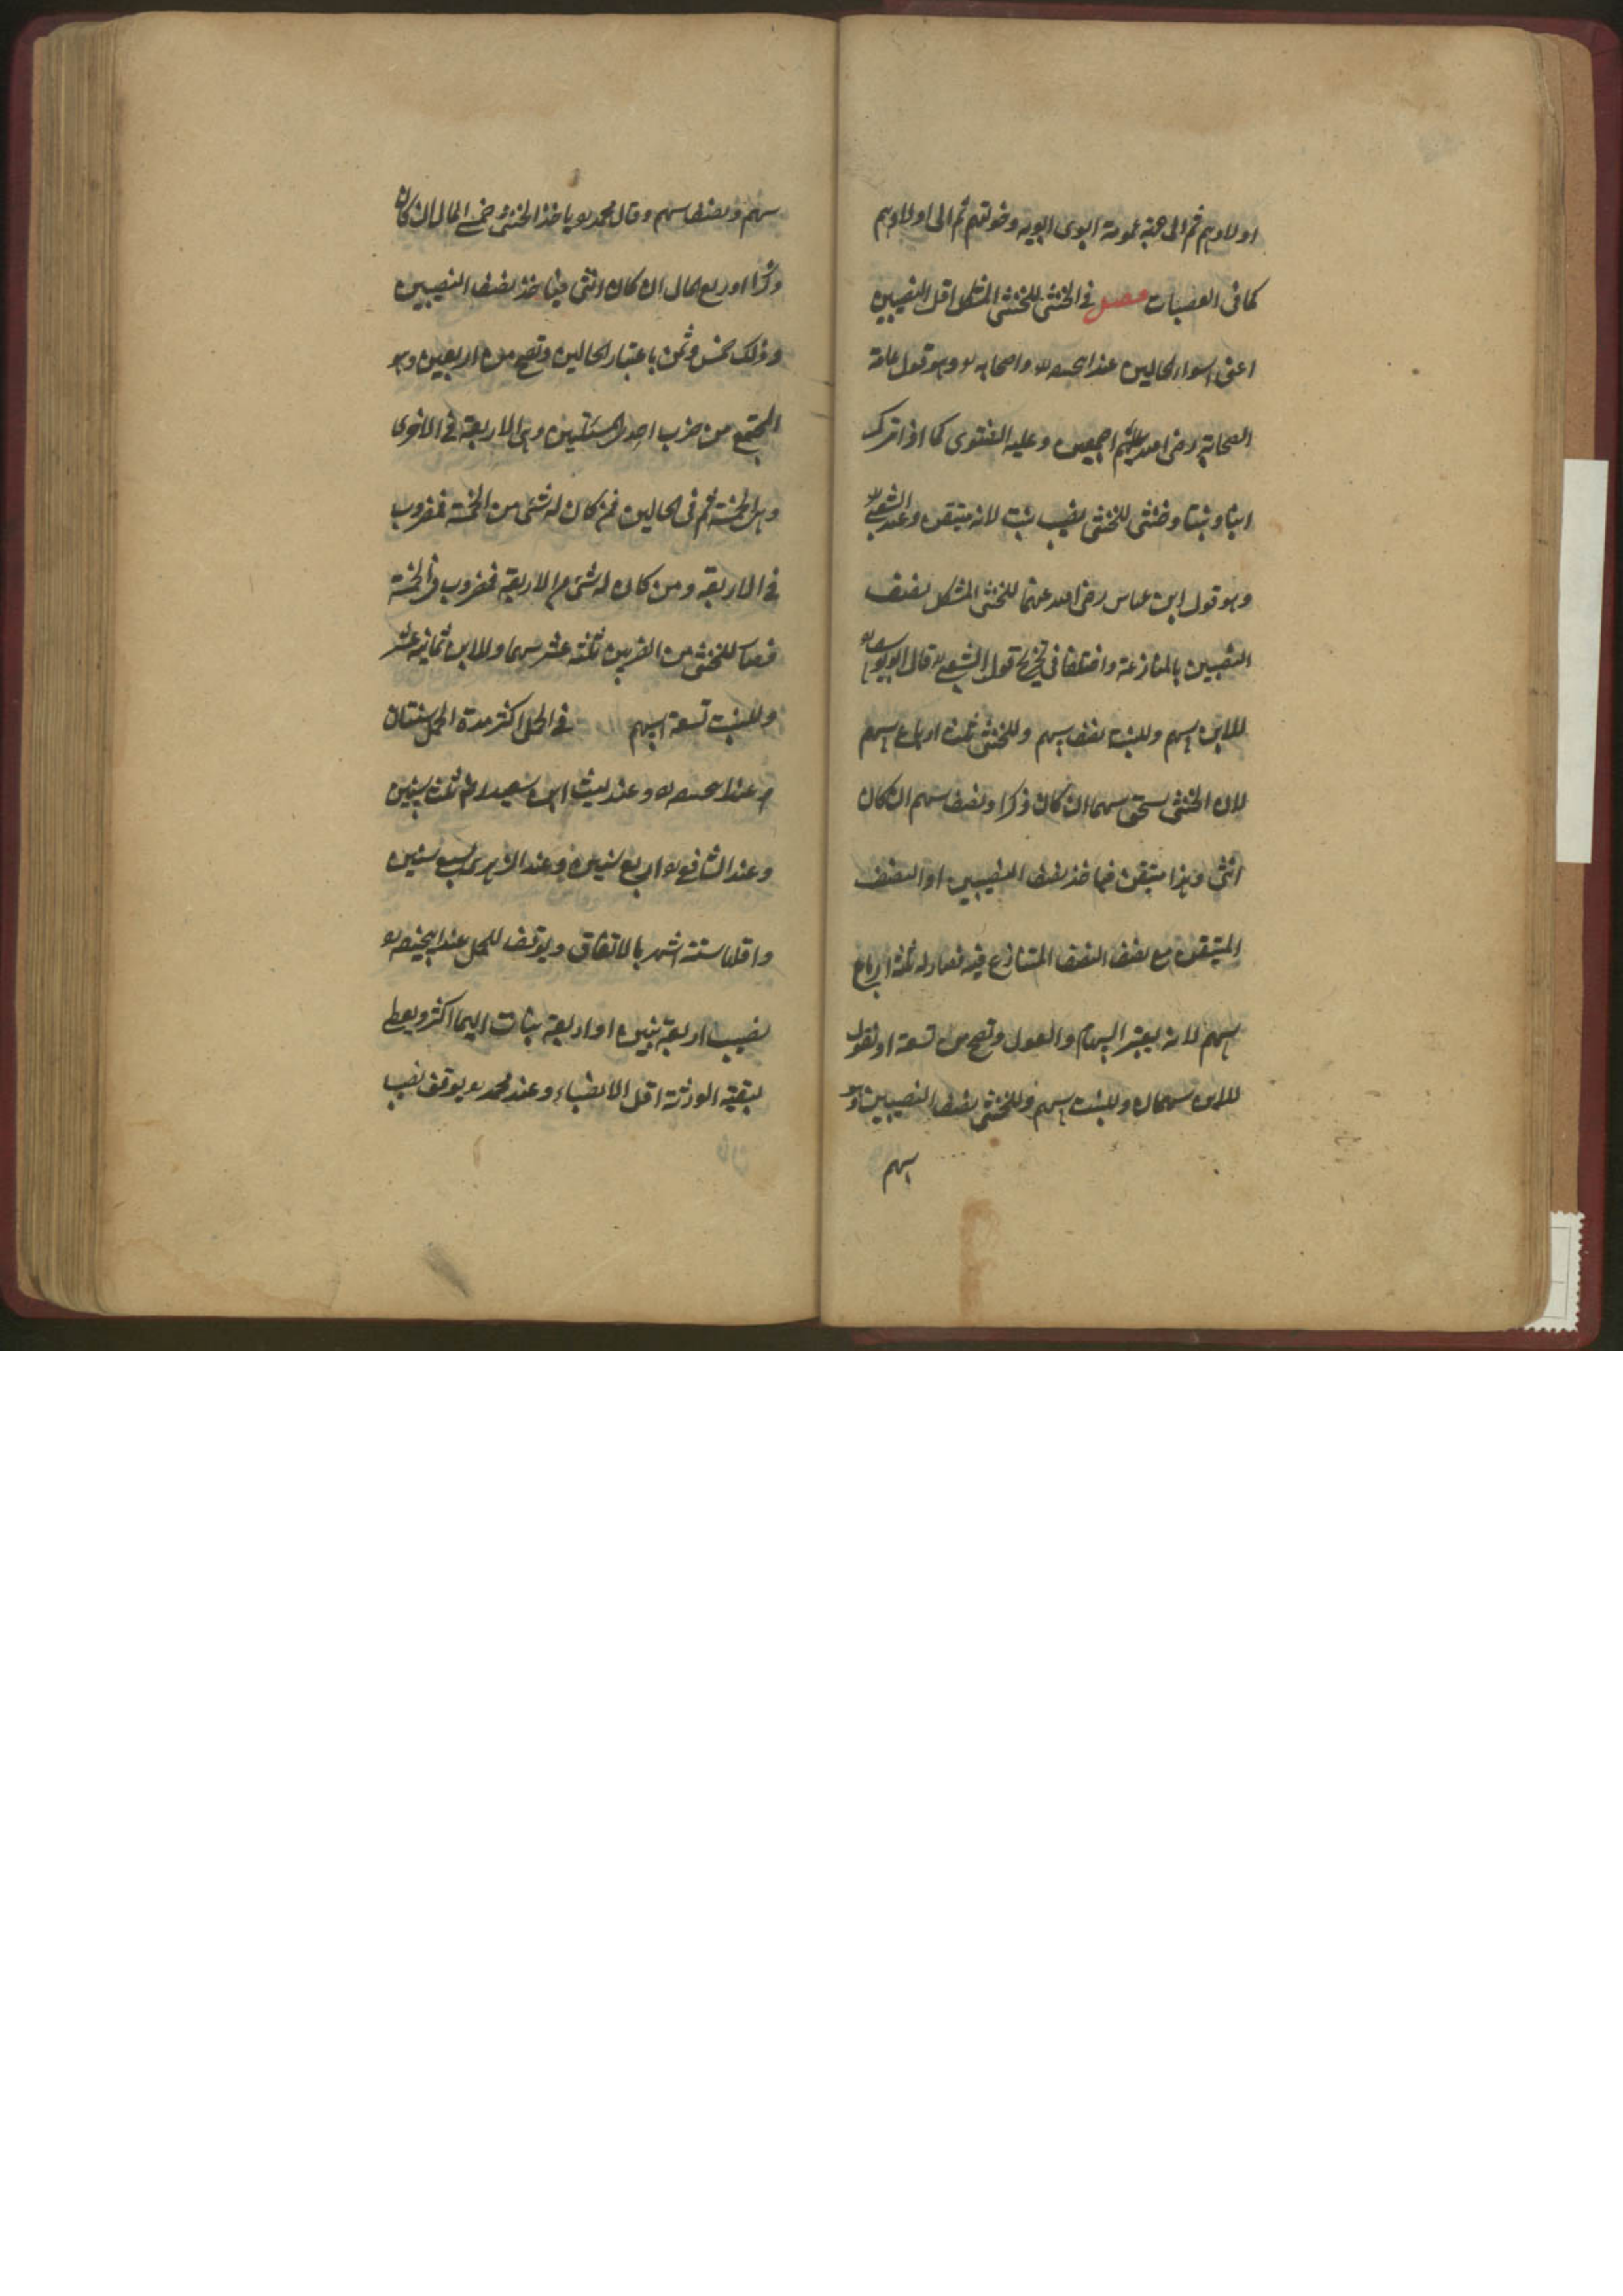 اولادهم ثم الى جهة عمومة ابوى ابويه وخولتهم ثم الى اولادهم
كما فى العصبات فصل فى الخنثى للخنثى المشكل اقل النصيبين
اعنى اسوء الحالين عند ابيحنيفه رح واصحابه رح وهو قول عامة
الصحابة رضى الله عنهم اجمعين وعليه الفتوى كما اذا ترك
ابنا وبنتا وخنثى للخنثى نصيب بنت لانه متيقن وعند الشعبى رح
وهو قول ابن عباس رضى الله عنهما للخنثى المشكل نصف
النصيبين بالمنازعة واختلفا فى تخريج قول الشعبى رح قال ابو يوسف رح
للابن سهم وللبنت نصف سهم وللخنثى ثلثة ارباع سهم
لان الخنثى يستحق سهما ان كان ذكرا ونصف سهم ان كان
انثى وهذا متيقن فياخذ نصف النصيبين او النصف
المتيقن مع نصف النصف المتنازع فيه فصار له ثلثة ارباع
سهم لانه يعتبر السهام والعول وتصح من تسعة او نقول
للابن سهمان وللبنت سهم وللخنثى نصف النصيبين وهو
سهم
سهم ونصف سهم وقال محمد رح ياخذ الخنثى خمسى المال ان كان
ذكرا وربع المال ان كان انثى فياخذ نصف النصيبين
وذلك خمس وثمن باعتبار الحالين وتصح من اربعين وهو
المجتمع من ضرب احدى المسئلتين وهى الاربعة فى الاخرى
وهى الخمسة ثم فى الحالين فمن كان له شئ من الخمسة فمضروب
فى الاربعة ومن كان له شئ من الاربعة فمضروب فى الخمسة
فصار للخنثى من الضربين ثلثة عشر سهما وللابن ثمانية عشر
وللبنت تسعة اسهم فى الحمل اكثر مدة الحمل سنتان
عند ابيحنيفه رح وعند ليث ابن سعيد رح ثلث سنين
وعند الشافعى رح اربع سنين وعند الزهرى سبع سنين
واقلها ستة اشهر بالاتفاق ويوقف للحمل عند ابيحنيفه رح
نصيب اربعة بنين او اربعة بنات ايهما اكثر ويعطى
لبقية الورثة اقل الانصباء وعند محمد رح يوقف نصيب